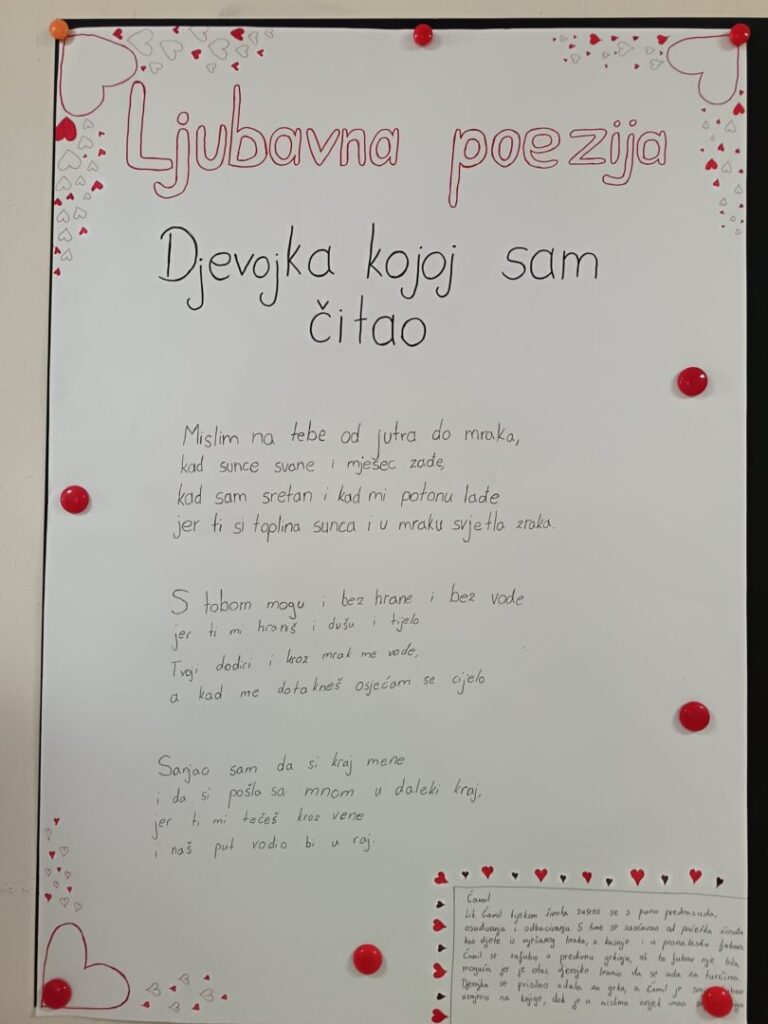 Ljubavna poezija
Djevojka kojoj sam
čitao
Mislim na tebe od jutra do mraka,
kad sunce svane i mjesec zađe,
kad sam sretan i kad mi potonu lađe
jer ti si toplina sunca i u mraku svjetla zraka.
S tobom mogu i bez hrane i bez vode
jer ti mi hraniš i dušu i tijelo
Tvoji dodiri i kroz mrak me vode,
a kad me dotakneš osjećam se cijelo
Sanjao sam da si kraj mene
i da si pošla sa mnom u daleki kraj,
jer ti mi tečeš kroz vene
i naš put vodio bi u raj.
Ćamil
Lik Ćamil tijekom života susreo se s puno predrasuda,
osuđivanja i odbacivanja S time se suočavao od početka života
kao dijete iz mješanog braka, a kasnije i u pronalasku ljubavi
Ćamil se zaljubio u predivnu grkinju, ali ta ljubav nije bila
moguća jer je otac djevojke branio da se uda za turčina
Djevojka se prisilno udala za grka, a Ćamil je
usmjerio na knjige, dok je u mislima uvijek imao